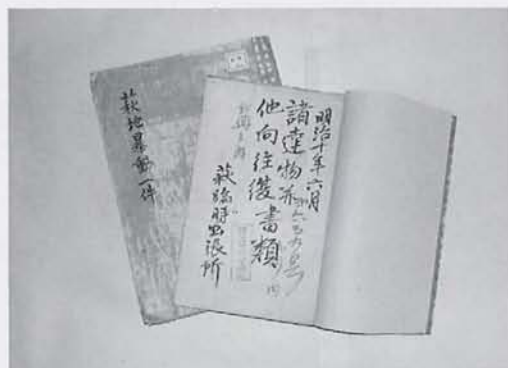 萩地暴動一件
明治十年六月
諸達物并
他向往復書類
萩臨時出張所